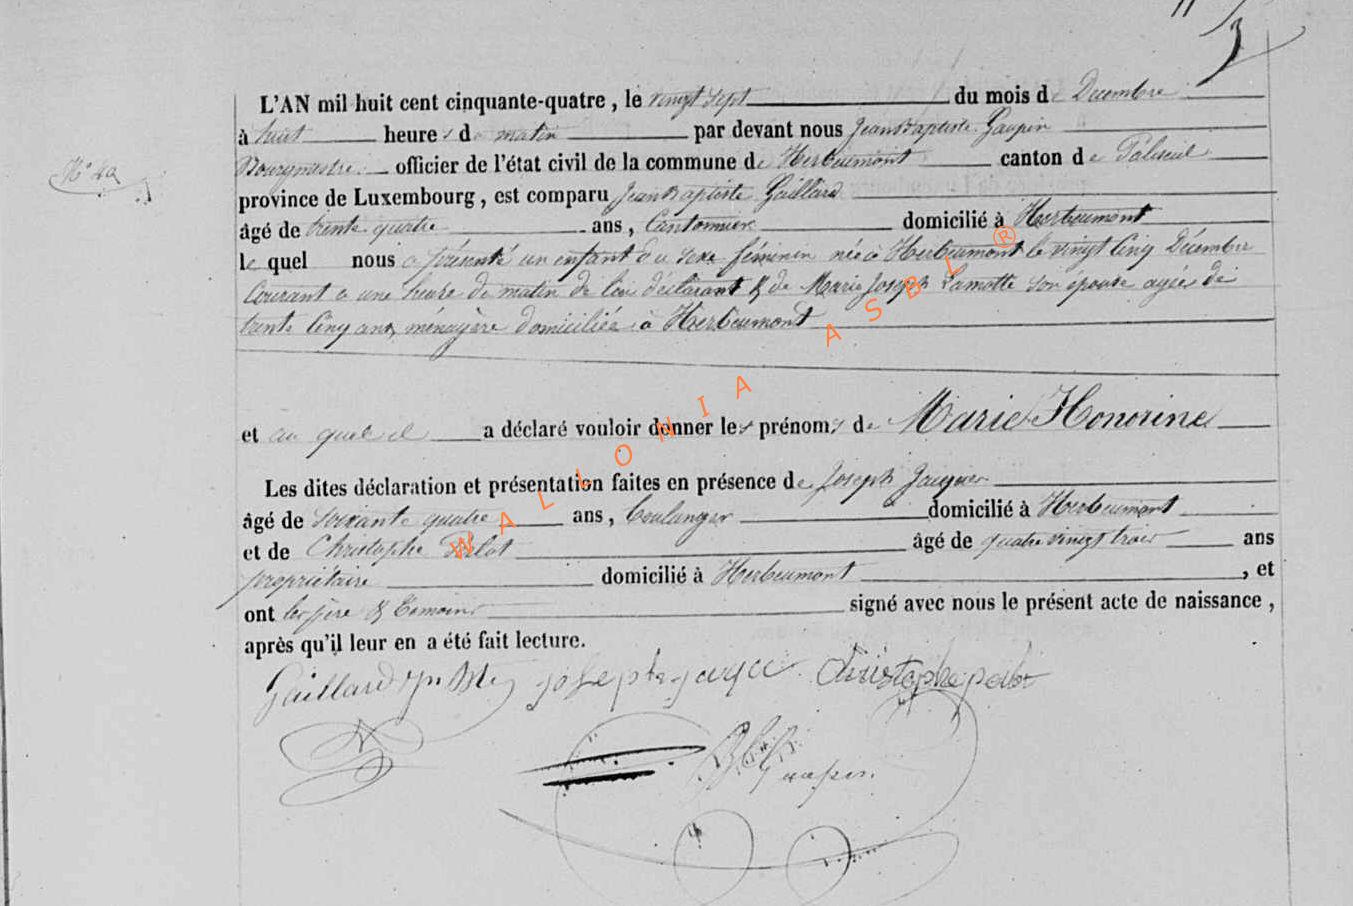 3
L'AN mil huit cent cinquante-quatre, le vingt sept du mois de Decembre
à huit heures du matin par devant nous Jean Baptiste Gaupin
Bourgmestre officier de l'état civil de la commune de Herbeumont canton de Paliseul
N° 42
province de Luxembourg, est comparu Jean Baptiste Gaillard
âgé de trente quatre ans, Cantonnier domicilié à Herbeumont
le quel nous a présenté un enfant du sexe féminin née à Herbeumont le vingt Cinq Décembre
Courant a une heure du matin de lui déclarant & de Marie Joseph Lamotte son épouse agée de
trente Cinq ans, ménagère domiciliée à Herbeumont
et au quel il a déclaré vouloir donner les prénoms de Marie Honorine
Les dites déclaration et présentation faites en présence de Joseph Jacques
âgé de soixante quatre ans, boulanger domicilié à Herbeumont
et de Christophe âgé de quatre vingt trois ans
propriétaire domicilié à Herbeumont, et
ont les père & témoins signé avec nous le présent acte de naissance,
après qu'il leur en a été fait lecture.
Gaillard joseph christophe
Gaupin
WALLONIA ASBL ®